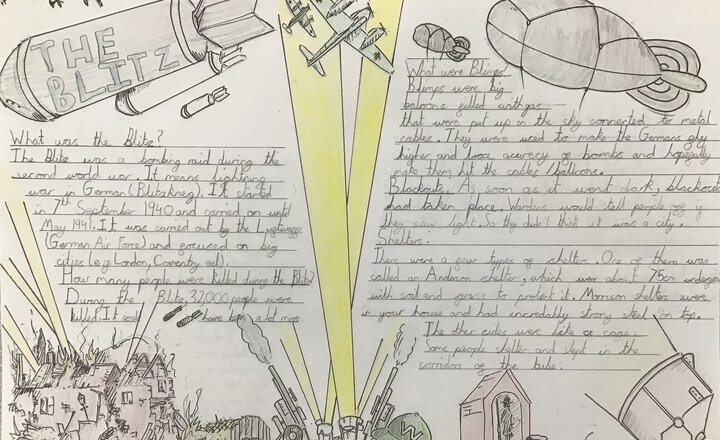 THE
BLITZ
What was the Blitz?
The Blitz was a bombing raid during the
second world war. It means lightning
war in German (Blitzkreig). It started
in 7th September 1940 and carried on until
May 1941. It was carried out by the Lugtwagge
(German Air Force) and gocused on big
cities (eg London, Coventry
How many people were killed during the Blitz?
During the Blitz 32,000 people were
killed. It
have been a lot more
What were Blimps?
Blimps were big
baloons gilled with gas
that were put up in the sky connected to metal
cables. They were used to make the Germans gly
higher and of bombs and hopegully
make them hit the cables / balloons.
Blackouts. As soon as it went dark, blackouts
had taken place. Wardens would tell people ogg ig
they saw light. So they didn't think it was a city.
Shelters.
There were a gew types of shelter. One of them was
called an Anderson shelter, which were about 75cm
with soil and grass to protect it. Morrison shelters were
in your house and had incredably strong steel on top.
The other sides were like a cage.
Some people shelter and slept in the
corridors of the tube.
W